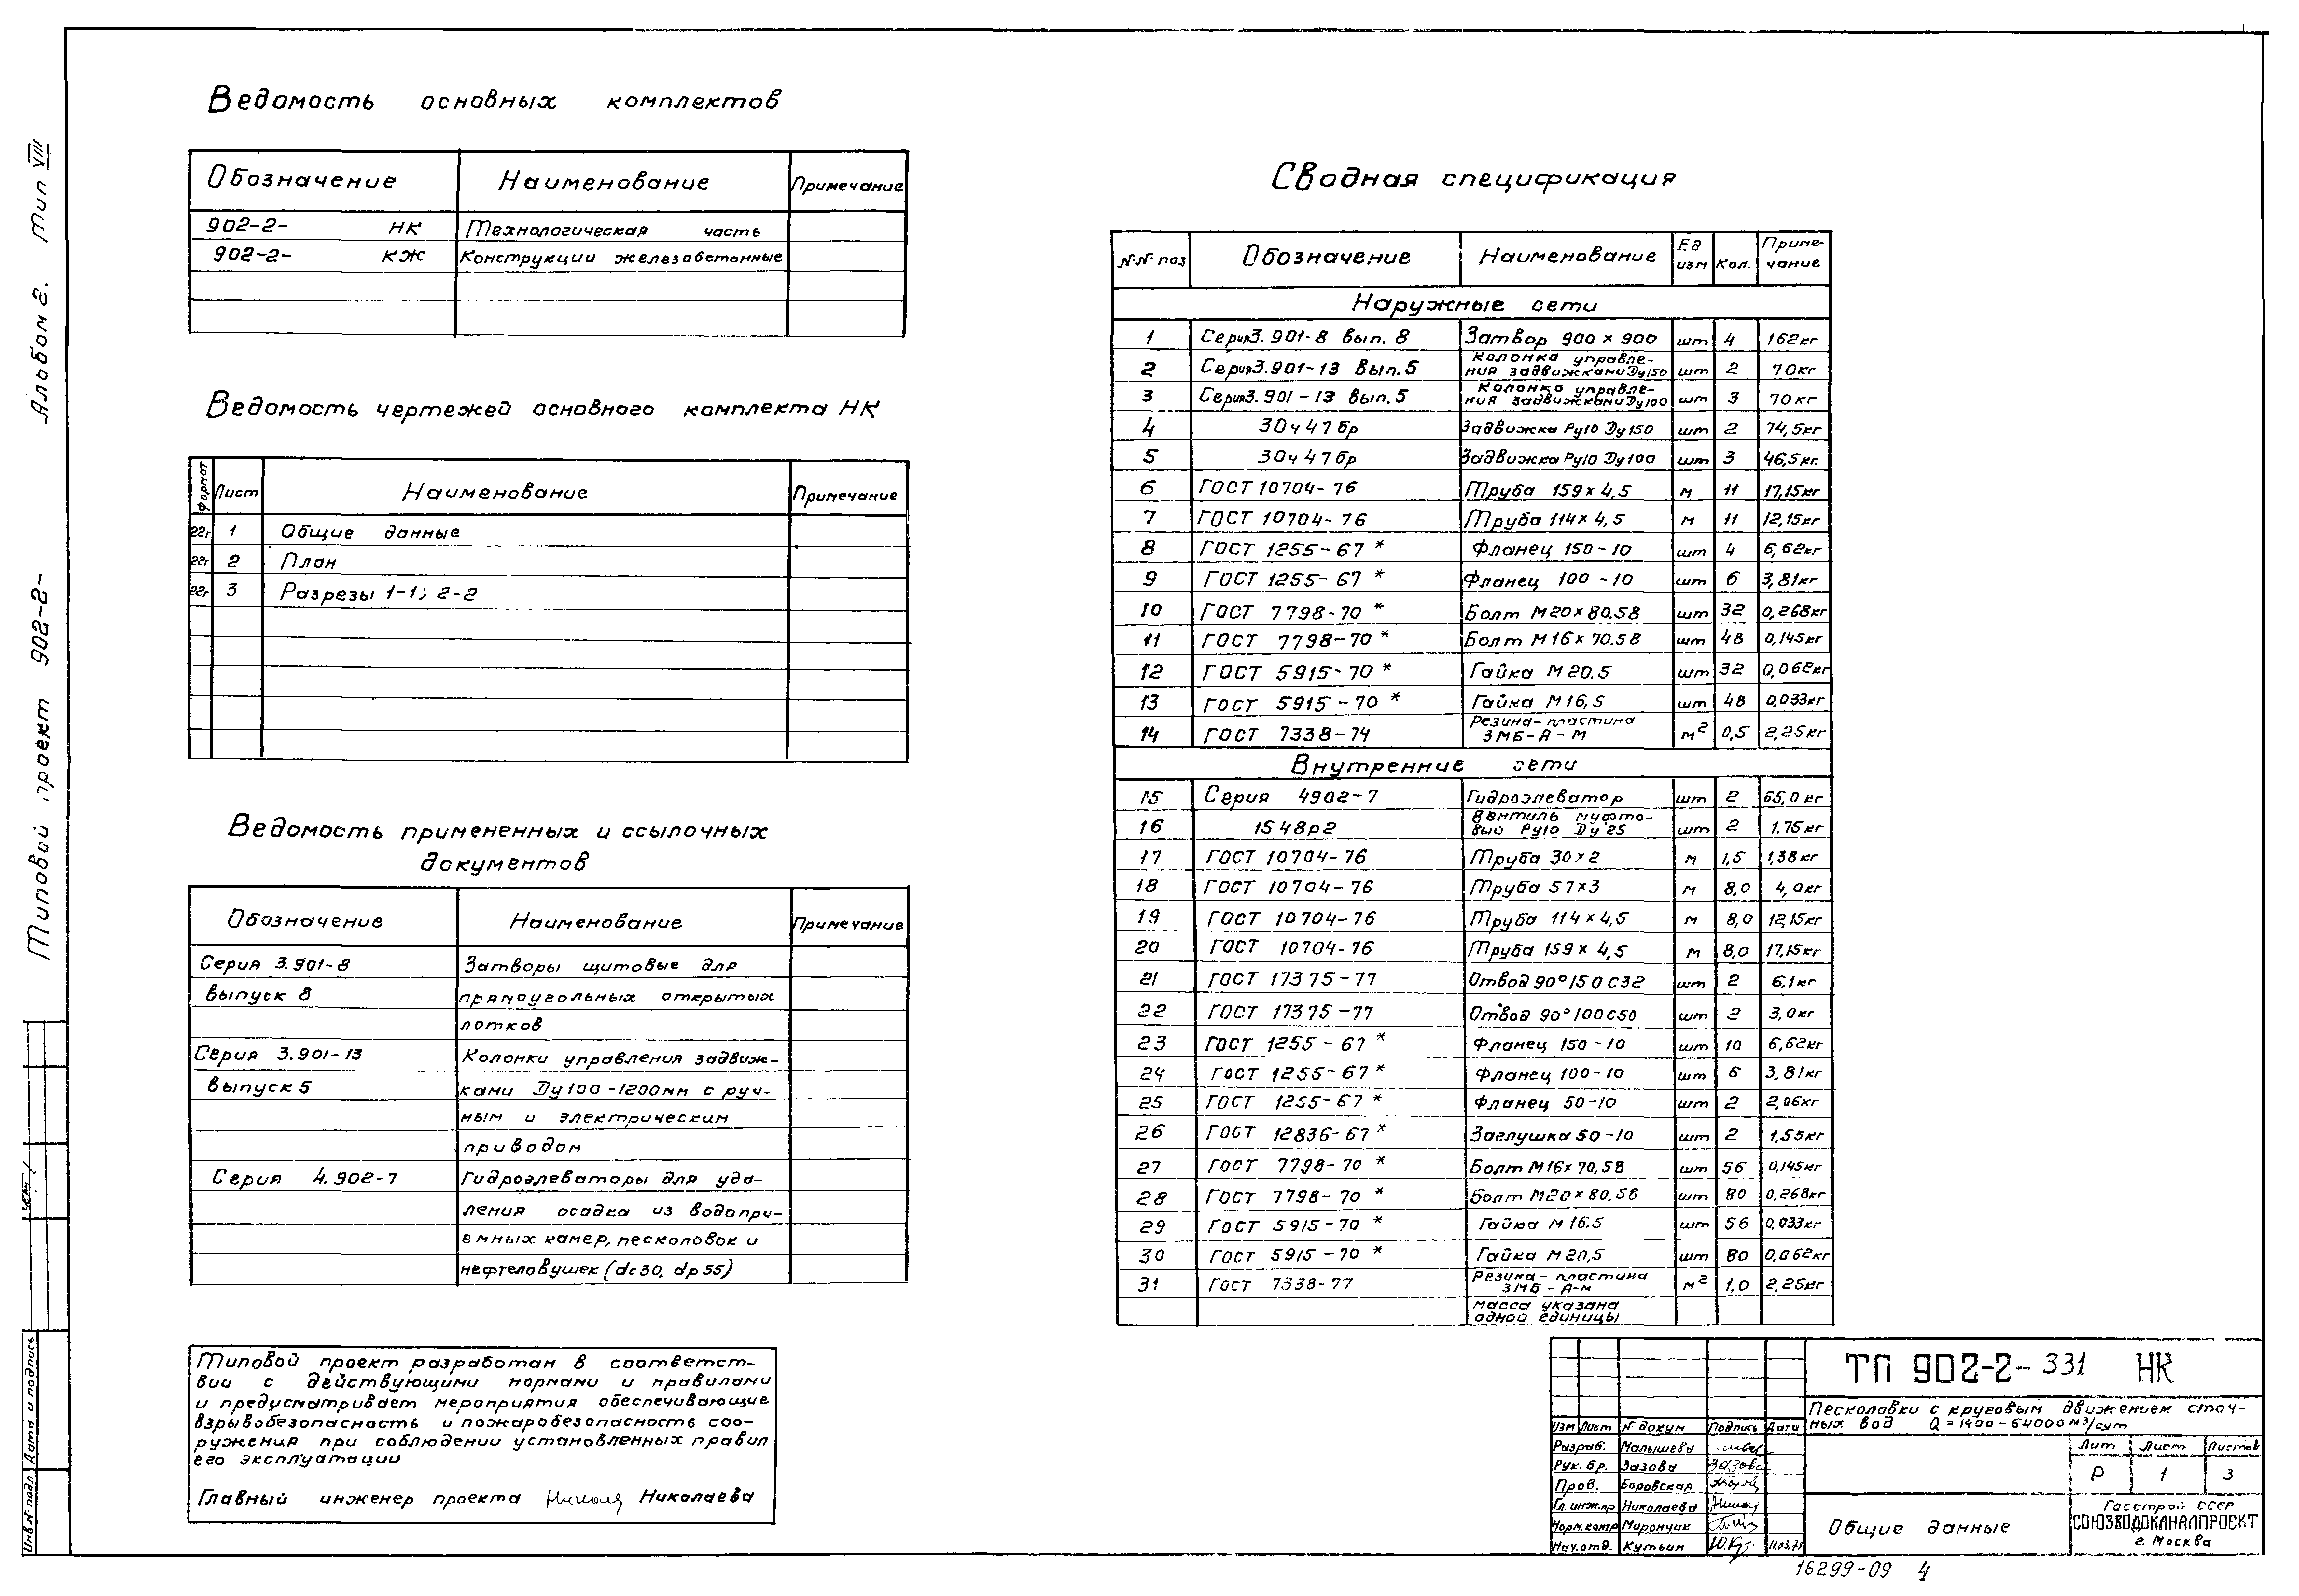 Альбом 2. Тип VIII
Типовой проект 902-2-
Ведомость основных комплектов
Обозначение Наименование Примечание
902-2- НК Технологическая часть
902-2- КЖ Конструкции железобетонные
Ведомость чертежей основного комплекта НК
Формат Лист Наименование Примечание
22г 1 Общие данные
22г 2 План
22г 3 Разрезы 1-1; 2-2
Ведомость примененных и ссылочных
документов
Обозначение Наименование Примечание
Серия 3.901-8 Затворы щитовые для
выпуск 8 прямоугольных открытых
лотков
Серия 3.901-13 Колонки управления задвиж-
выпуск 5 ками Ду100-1200мм с руч-
ным и электрическим
приводом
Серия 4.902-7 Гидроэлеваторы для уда-
ления осадка из водопри-
емных камер, песколовок и
нефтеловушек (dc30, dp55)
Типовой проект разработан в соответст-
вии с действующими нормами и правилами
и предусматривает мероприятия обеспечивающие
взрывобезопасность и пожаробезопасность соо-
ружения при соблюдении установленных правил
его эксплуатации
Главный инженер проекта Николаева
Сводная спецификация
№№ поз Обозначение Наименование Ед изм Кол. Приме-чание
Наружные сети
1 Серия3.901-8 вып. 8 Затвор 900×900 шт 4 162кг
2 Серия3.901-13 вып.5 Колонка управле-ния задвижками Ду150 шт 2 70кг
3 Серия3.901-13 вып.5 Колонка управле-ния задвижками Ду100 шт 3 70кг
4 30ч47бр Задвижка Ру10 Ду150 шт 2 74,5кг
5 30ч47бр Задвижка Ру10 Ду100 шт 3 46,5кг.
6 ГОСТ 10704-76 Труба 159×4,5 м 11 17,15кг
7 ГОСТ 10704-76 Труба 114×4,5 м 11 12,15кг
8 ГОСТ 1255-67 * Фланец 150-10 шт 4 6,62кг
9 ГОСТ 1255-67 * Фланец 100-10 шт 6 3,81кг
10 ГОСТ 7798-70 * Болт М20×80,58 шт 32 0,268кг
11 ГОСТ 7798-70 * Болт М16×70.58 шт 48 0,145кг
12 ГОСТ 5915-70 * Гайка М20.5 шт 32 0,062кг
13 ГОСТ 5915-70 * Гайка М16,5 шт 48 0,033кг
14 ГОСТ 7338-74 Резина-пластина 3МБ-А-М м² 0,5 2,25кг
Внутренние сети
15 Серия 4902-7 Гидроэлеватор шт 2 65,0кг
16 1548р2 Вентиль муфто-вый Ру10 Ду25 шт 2 1,75кг
17 ГОСТ 10704-76 Труба 30×2 м 1,5 1,38кг
18 ГОСТ 10704-76 Труба 57×3 м 8,0 4,0кг
19 ГОСТ 10704-76 Труба 114×4,5 м 8,0 12,15кг
20 ГОСТ 10704-76 Труба 159×4,5 м 8,0 17,15кг
21 ГОСТ 17375-77 Отвод 90°150С32 шт 2 6,1кг
22 ГОСТ 17375-77 Отвод 90°100С50 шт 2 3,0кг
23 ГОСТ 1255-67 * Фланец 150-10 шт 10 6,62кг
24 ГОСТ 1255-67 * Фланец 100-10 шт 6 3,81кг
25 ГОСТ 1255-67 * Фланец 50-10 шт 2 2,06кг
26 ГОСТ 12836-67 * Заглушка 50-10 шт 2 1,55кг
27 ГОСТ 7798-70 * Болт М16×70,58 шт 56 0,145кг
28 ГОСТ 7798-70 * Болт М20×80,58 шт 80 0,268кг
29 ГОСТ 5915-70 * Гайка М16.5 шт 56 0,033кг
30 ГОСТ 5915-70 * Гайка М20,5 шт 80 0,062кг
31 ГОСТ 7338-77 Резина-пластина 3МБ-А-М м² 1,0 2,25кг
Масса указана
одной единицы
ТП 902-2-331 НК
Песколовки с круговым движением сточ-
ных вод Q=1400-64000м³/сут
Изм Лист № докум Подпись Дата
Разраб. Малышева
Рук. бр. Зазова Зазова
Пров. Боровская
Гл. инж.пр Николаева
Норм.контр Мирончик
Нач.отд. Кутьин 11.03.78
Лит Лист Листов
Р 1 3
Общие данные
Госстрой СССР
СОЮЗВОДОКАНАЛПРОЕКТ
г. Москва
16299-09 4
Инв.№ подл Дата и подпись